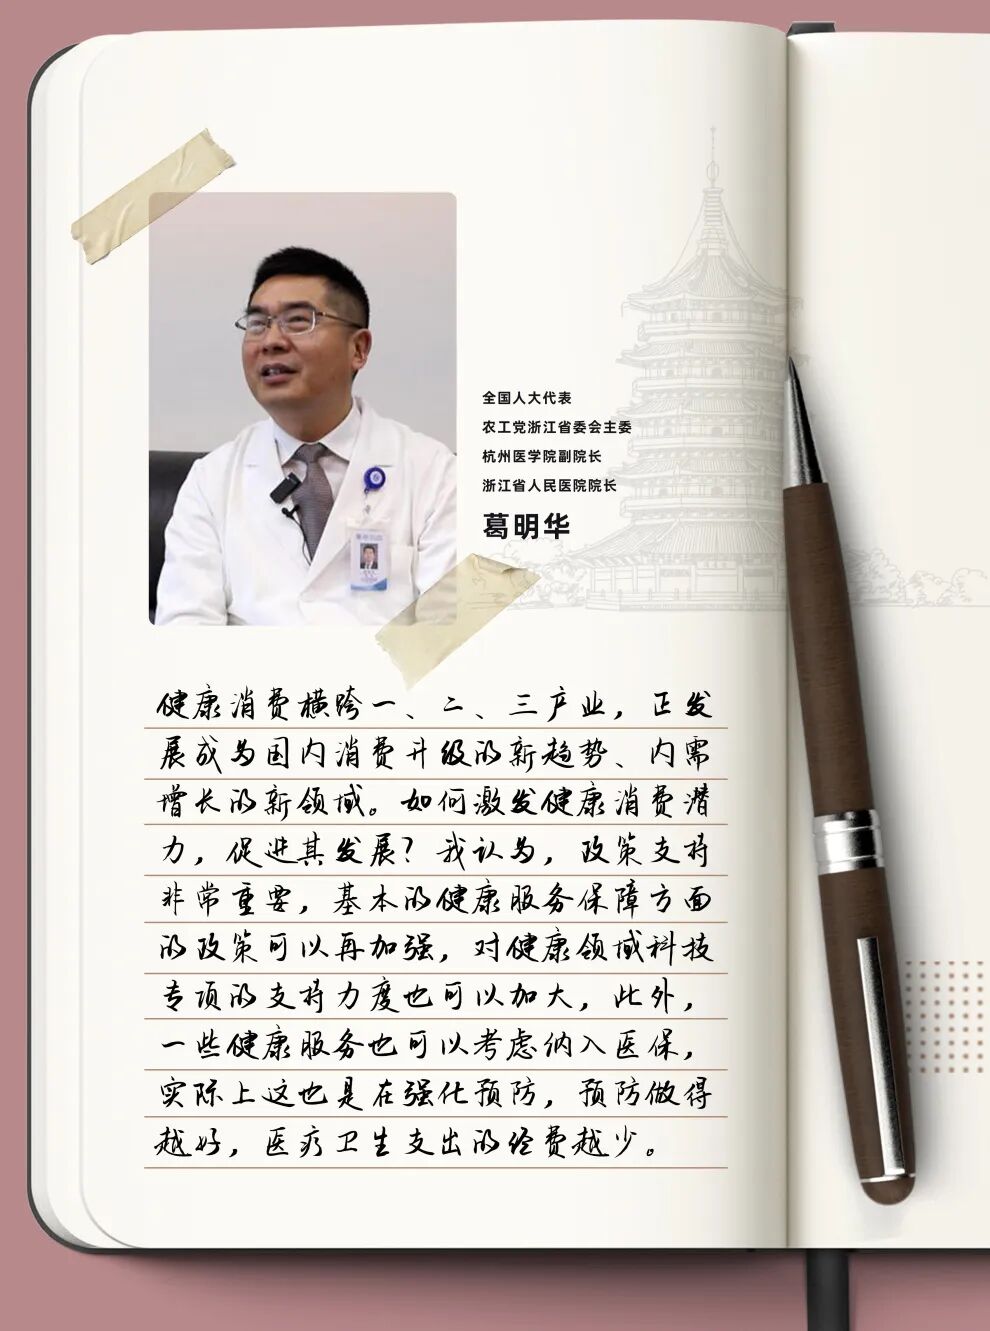 全国人大代表
农工党浙江省委会主委
杭州医学院副院长
浙江省人民医院院长
葛明华
健康消费横跨一、二、三产业，正发
展成为国内消费升级的新趋势、内需
增长的新领域。如何激发健康消费潜
力，促进其发展？我认为，政策支持
非常重要，基本的健康服务保障方面
的政策可以再加强，对健康领域科技
专项的支持力度也可以加大，此外，
一些健康服务也可以考虑纳入医保，
实际上这也是在强化预防，预防做得
越好，医疗卫生支出的经费越少。